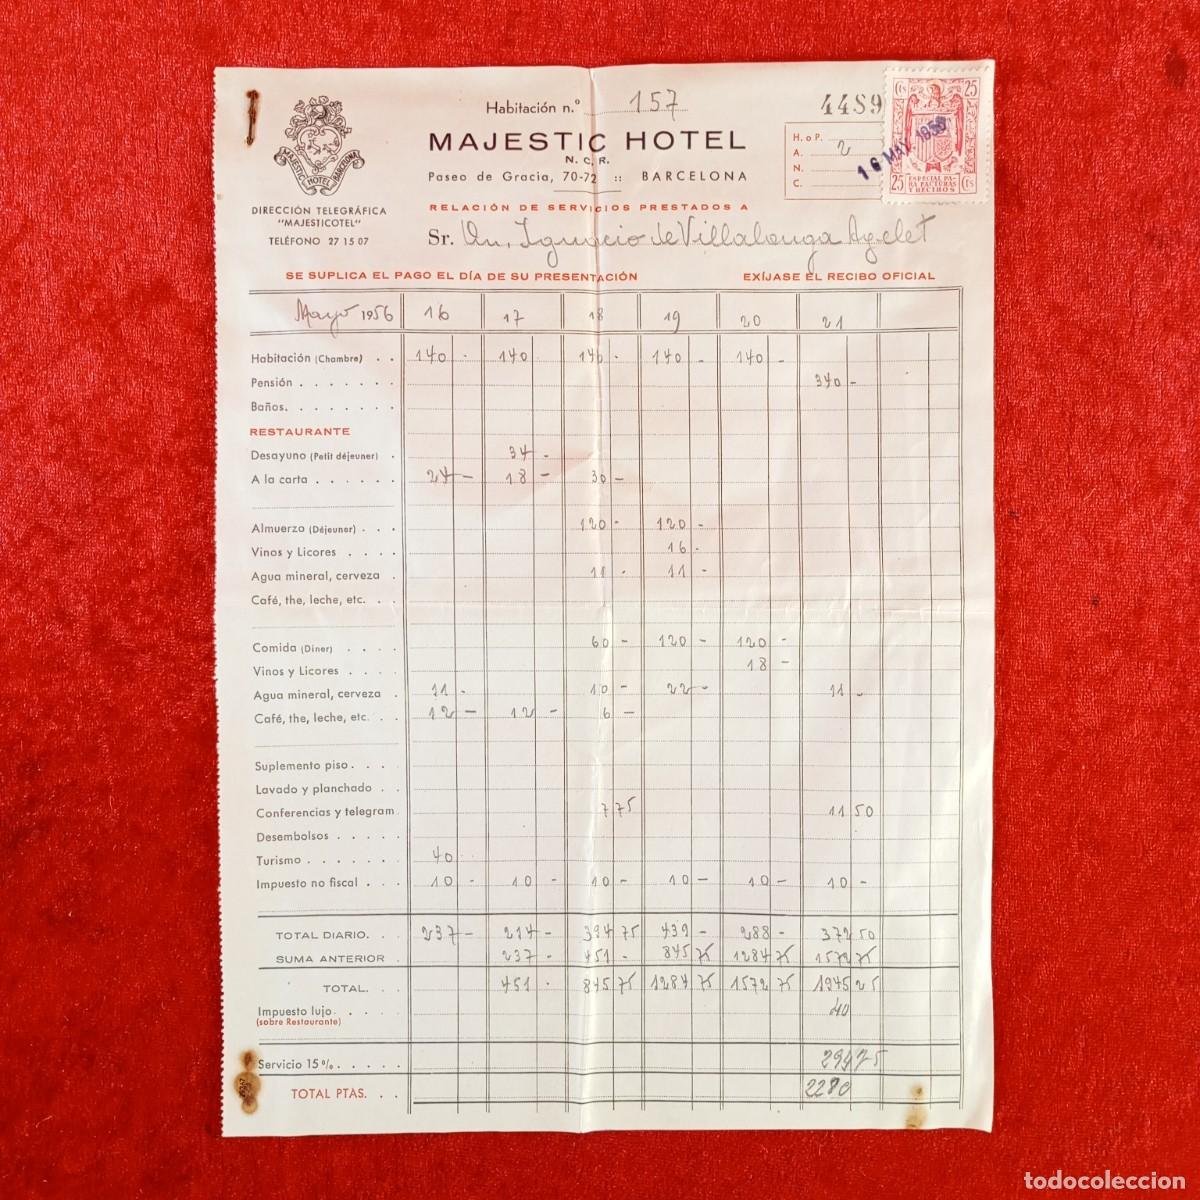 Habitación n.º 157
4489
MAJESTIC HOTEL
N. C. R.
Paseo de Gracia, 70-72 :: BARCELONA
H. o P.
A. 2
N.
C.
Cts 25
16 MAY. 1956
ESPECIAL PA-
RA FACTURAS
Y RECIBOS
25 Cts
MAJESTIC HOTEL BARCELONA
DIRECCIÓN TELEGRÁFICA
"MAJESTICOTEL"
TELÉFONO 27 15 07
RELACIÓN DE SERVICIOS PRESTADOS A
Sr. Dn. Ignacio de Villalonga Agelet
SE SUPLICA EL PAGO EL DÍA DE SU PRESENTACIÓN EXÍJASE EL RECIBO OFICIAL
Mayo 1956 16 17 18 19 20 21
Habitación (Chambre) . . 140 - 140 140 - 140 - 140 -
Pensión . . . . . . . 340 -
Baños. . . . . . . .
RESTAURANTE
Desayuno (Petit déjeuner) . 34 -
A la carta . . . . . . 24 - 18 - 30 -
Almuerzo (Déjeuner) . . . 120 - 120 -
Vinos y Licores . . . . 16 -
Agua mineral, cerveza . 11 - 11 -
Café, the, leche, etc. . .
Comida (Dîner) . . . . 60 - 120 - 120 -
Vinos y Licores . . . . 18 -
Agua mineral, cerveza . 11 - 10 - 22 - 11 -
Café, the, leche, etc. . . 12 - 12 - 6 -
Suplemento piso. . . .
Lavado y planchado . .
Conferencias y telegram. 7 75 11 50
Desembolsos . . . . .
Turismo . . . . . . . 40
Impuesto no fiscal . . . 10 - 10 - 10 - 10 - 10 - 10 -
TOTAL DIARIO. . . 237 - 214 - 394 75 439 - 288 - 372 50
SUMA ANTERIOR . 237 - 451 - 845 75 1284 75 1572 75
TOTAL. . . 451 - 845 75 1284 75 1572 75 1945 25
Impuesto lujo. . . . . 40
(sobre Restaurante)
Servicio 15 %. . . . . 294 75
TOTAL PTAS. . . 2280
todocoleccion